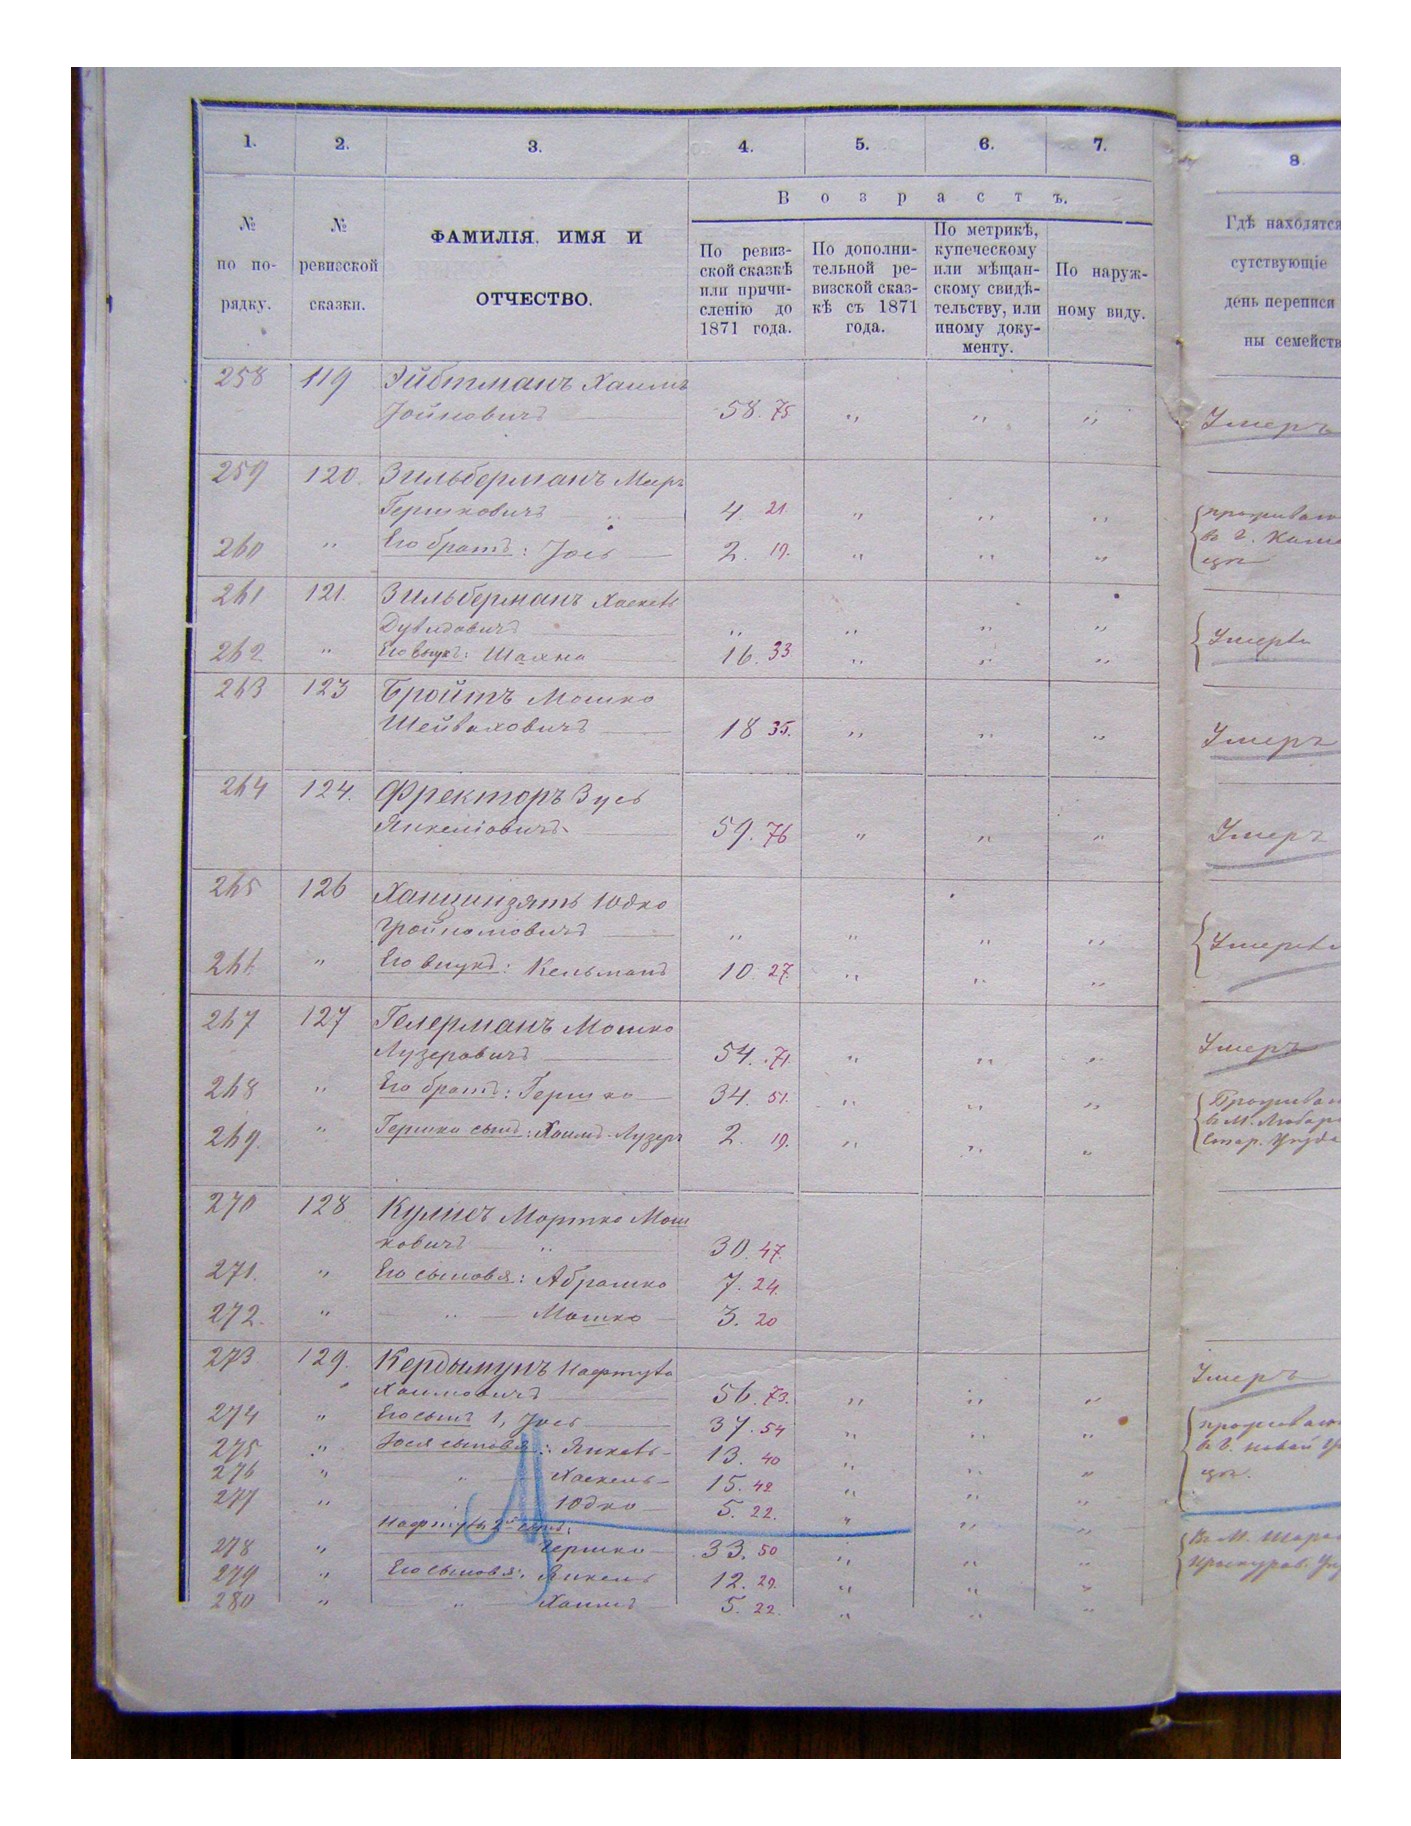 1. 2. 3. 4. 5. 6. 7. 8.
№ по по- рядку.
№ ревизской сказки.
ФАМИЛІЯ, ИМЯ И ОТЧЕСТВО.
Возрастъ.
По ревиз-
ской сказкѣ
или причи-
сленію до
1871 года.
По дополни-
тельной ре-
визской сказ-
кѣ съ 1871
года.
По метрикѣ,
купеческому
или мѣщан-
скому свидѣ-
тельству, или
иному доку-
менту.
По наруж-
ному виду.
Гдѣ находятся
сутствующіе
день переписи
ны семейств
258 119 Эйбтманъ Хаимъ
Іойновичъ 58. 75. „ „ „ Умеръ
259 120. Зильберманъ Меръ
Гершковичъ „ 4. 21. „ „ „
260 „ Его братъ: Іось 2. 19. „ „ „
въ г. Каме
261 121. Зильберманъ Хаскель
Дувидовичъ „ „ „ „ Умерли
262 „ Его внукъ: Шахна 16. 33. „ „ „
263 123 Бройтъ Мошко
Шейваховичъ 18 35. „ „ „ Умеръ
264 124. Фректоръ Зусь
Янкеліовичъ 59. 76 „ „ „ Умеръ
265 126 Юдко
„ „ „ „ Умерли
266 „ Его внукъ: Кельманъ 10. 27. „ „ „
267 127 Гелерманъ Мошко
Лузеровичъ 54. 71. „ „ „ Умеръ
268 „ Его братъ: Гершко 34. 51. „ „ „
269. „ Гершка сынъ: Хаимъ-Лузеръ 2. 19. „ „ „
въ М. Любар
Стар. Уѣзда
270 128 Кулисъ Мортко Мош
ковичъ „ 30. 47.
271. „ Его сыновья: Абрашко 7. 24.
272. „ „ Мошко 3. 20
273 129. Кердымунъ Нафтула
Хаимовичъ 56. 73. „ „ „ Умеръ
274 „ Его сынъ 1, Іось 37. 54 „ „ „
275 „ Іося сыновья: Янкель 13. 40 „ „ „
въ г. новой
276 „ „ Хаскель 15. 42 „ „ „
277 „ „ Юдко 5. 22. „ „ „
Нафтулы 2й сынъ:
278 „ Гершко 33. 50 „ „ „
Въ М. Шара
279 „ Его сыновья: Янкель 12. 29. „ „ „
Проскуров. Уѣ
280 „ „ Хаимъ 5. 22. „ „ „